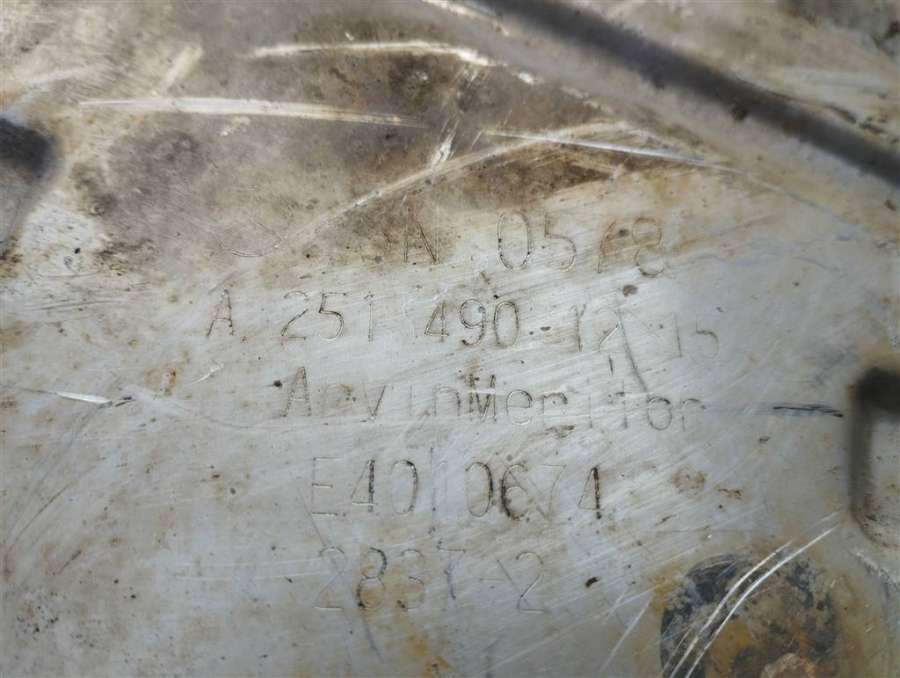 N 0578
A 251 490 12 15
ArvinMeritor
E4010674
2837-2